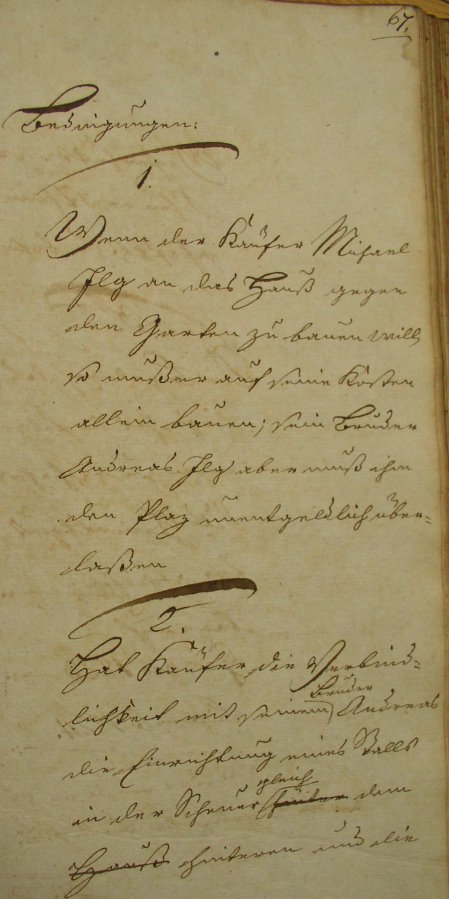 67.
Bedingungen:
1.
Wenn der Käufer Michael
Ilg an das Hauß gegen
den Garten zu bauen will,
so muß er auf seine Kosten
allein bauen; sein Bruder
Andreas Ilg aber muß ihm
den Plaz unentgeldlich über-
laßen
2.
Hat Käufer die Verbind-
lichkeit mit seinem Bruder Andreas
die Einrichtung eines Stalls
in der Scheuer gleich hinter dem
Hauß hinteren und die